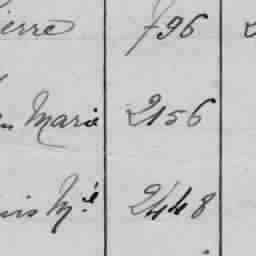 ierre 796
Marie 2156
uis M.é 2448